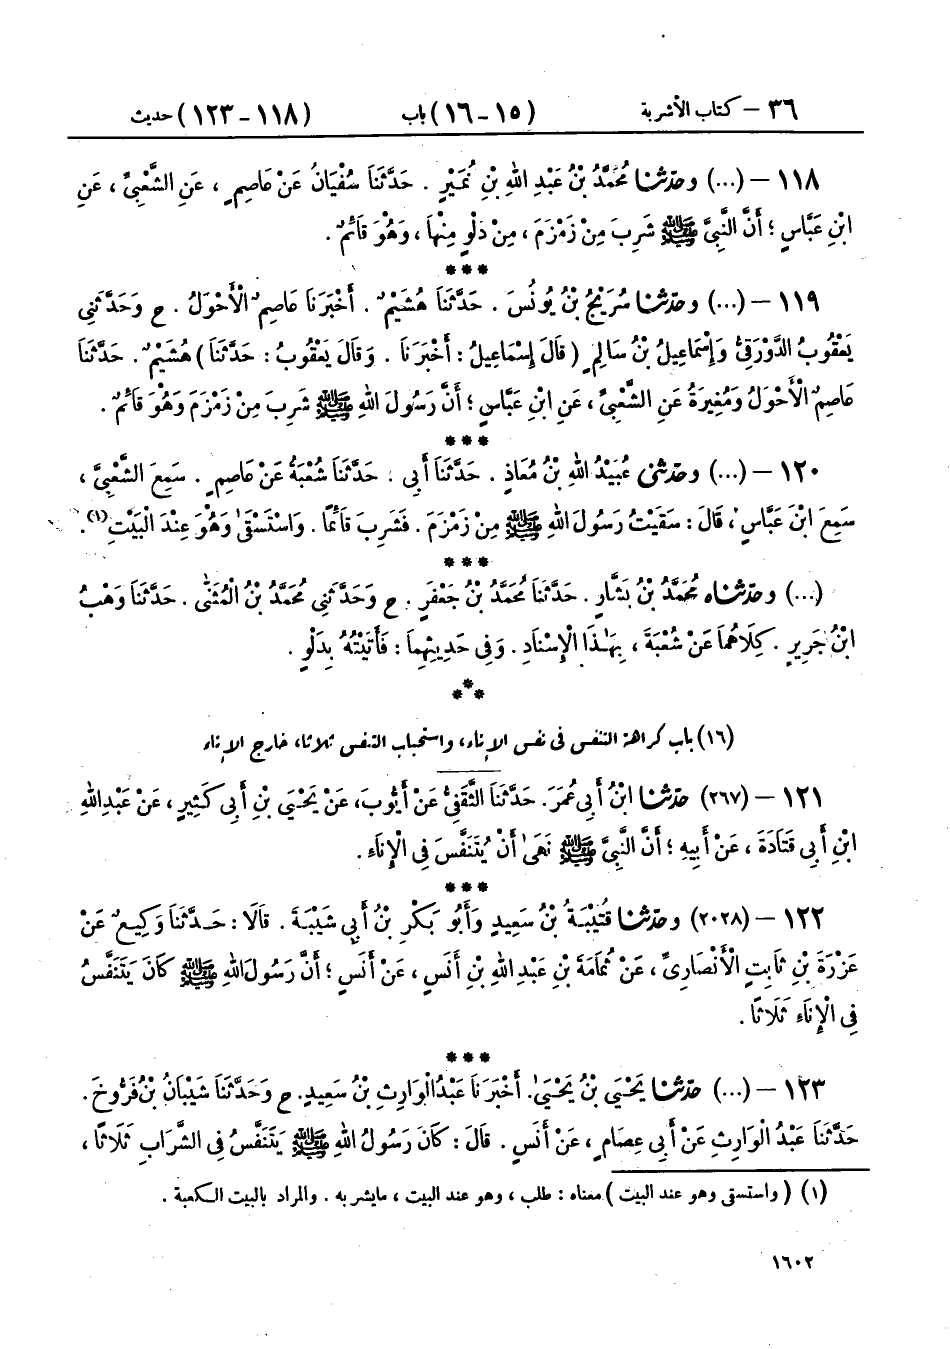 ٣٦ – كتاب الأشربة (١٥-١٦) باب (١١٨-١٢٣) حديث
١١٨ – (...) وحَدَّثَنَا مُحَمَّدُ بْنُ عَبْدِ اللهِ بْنِ نُمَيْرٍ . حَدَّثَنَا سُفْيَانُ عَنْ عَاصِمٍ ، عَنِ الشَّعْبِيِّ ، عَنِ
ابْنِ عَبَّاسٍ ؛ أَنَّ النَّبِيَّ ﷺ شَرِبَ مِنْ زَمْزَمَ ، مِنْ دَلْوٍ مِنْهَا ، وَهُوَ قَائِمٌ .
***
١١٩ – (...) وحَدَّثَنَا سُرَيْجُ بْنُ يُونُسَ . حَدَّثَنَا هُشَيْمٌ . أَخْبَرَنَا عَاصِمٌ الْأَحْوَلُ . ح وَحَدَّثَنِي
يَعْقُوبُ الدَّوْرَقِيُّ وَإِسْمَاعِيلُ بْنُ سَالِمٍ ( قَالَ إِسْمَاعِيلُ : أَخْبَرَنَا . وَقَالَ يَعْقُوبُ : حَدَّثَنَا ) هُشَيْمٌ . حَدَّثَنَا
عَاصِمٌ الْأَحْوَلُ وَمُغِيرَةُ عَنِ الشَّعْبِيِّ ، عَنِ ابْنِ عَبَّاسٍ ؛ أَنَّ رَسُولَ اللهِ ﷺ شَرِبَ مِنْ زَمْزَمَ وَهُوَ قَائِمٌ .
***
١٢٠ – (...) وحَدَّثَنِي عُبَيْدُ اللهِ بْنُ مُعَاذٍ . حَدَّثَنَا أَبِي . حَدَّثَنَا شُعْبَةُ عَنْ عَاصِمٍ . سَمِعَ الشَّعْبِيَّ ،
سَمِعَ ابْنَ عَبَّاسٍ ، قَالَ : سَقَيْتُ رَسُولَ اللهِ ﷺ مِنْ زَمْزَمَ . فَشَرِبَ قَائِمًا . وَاسْتَسْقَىٰ وَهُوَ عِنْدَ الْبَيْتِ(١) .
***
(...) وحَدَّثَنَاه مُحَمَّدُ بْنُ بَشَّارٍ . حَدَّثَنَا مُحَمَّدُ بْنُ جَعْفَرٍ . ح وَحَدَّثَنِي مُحَمَّدُ بْنُ الْمُثَنَّى . حَدَّثَنَا وَهْبُ
ابْنُ جَرِيرٍ . كِلَاهُمَا عَنْ شُعْبَةَ ، بِهَـٰذَا الْإِسْنَادِ . وَفِي حَدِيثِهِمَا : فَأَتَيْتُهُ بِدَلْوٍ .
***
(١٦) باب كراهة التنفس فى نفس الإناء، واستحباب التنفس ثلاثا، خارج الإناء
١٢١ – (٢٦٧) حَدَّثَنَا ابْنُ أَبِي عُمَرَ. حَدَّثَنَا الثَّقَفِيُّ عَنْ أَيُّوبَ، عَنْ يَحْيَى بْنِ أَبِي كَثِيرٍ ، عَنْ عَبْدِ اللهِ
ابْنِ أَبِي قَتَادَةَ ، عَنْ أَبِيهِ ؛ أَنَّ النَّبِيَّ ﷺ نَهَىٰ أَنْ يُتَنَفَّسَ فِي الْإِنَاءِ .
***
١٢٢ – (٢٠٢٨) وحَدَّثَنَا قُتَيْبَةُ بْنُ سَعِيدٍ وَأَبُو بَكْرِ بْنُ أَبِي شَيْبَةَ . قَالَا : حَدَّثَنَا وَكِيعٌ عَنْ
عَزْرَةَ بْنِ ثَابِتٍ الْأَنْصَارِيِّ ، عَنْ ثُمَامَةَ بْنِ عَبْدِ اللهِ بْنِ أَنَسٍ ، عَنْ أَنَسٍ ؛ أَنَّ رَسُولَ اللهِ ﷺ كَانَ يَتَنَفَّسُ
فِي الْإِنَاءِ ثَلَاثًا .
***
١٢٣ – (...) حَدَّثَنَا يَحْيَى بْنُ يَحْيَىٰ. أَخْبَرَنَا عَبْدُ الْوَارِثِ بْنُ سَعِيدٍ. ح وَحَدَّثَنَا شَيْبَانُ بْنُ فَرُّوخَ .
حَدَّثَنَا عَبْدُ الْوَارِثِ عَنْ أَبِي عِصَامٍ ، عَنْ أَنَسٍ . قَالَ : كَانَ رَسُولُ اللهِ ﷺ يَتَنَفَّسُ فِي الشَّرَابِ ثَلَاثًا ،
(١) ( واستسقى وهو عند البيت ) معناه : طلب ، وهو عند البيت ، مايشربه . والمراد بالبيت الكعبة .
١٦٠٢